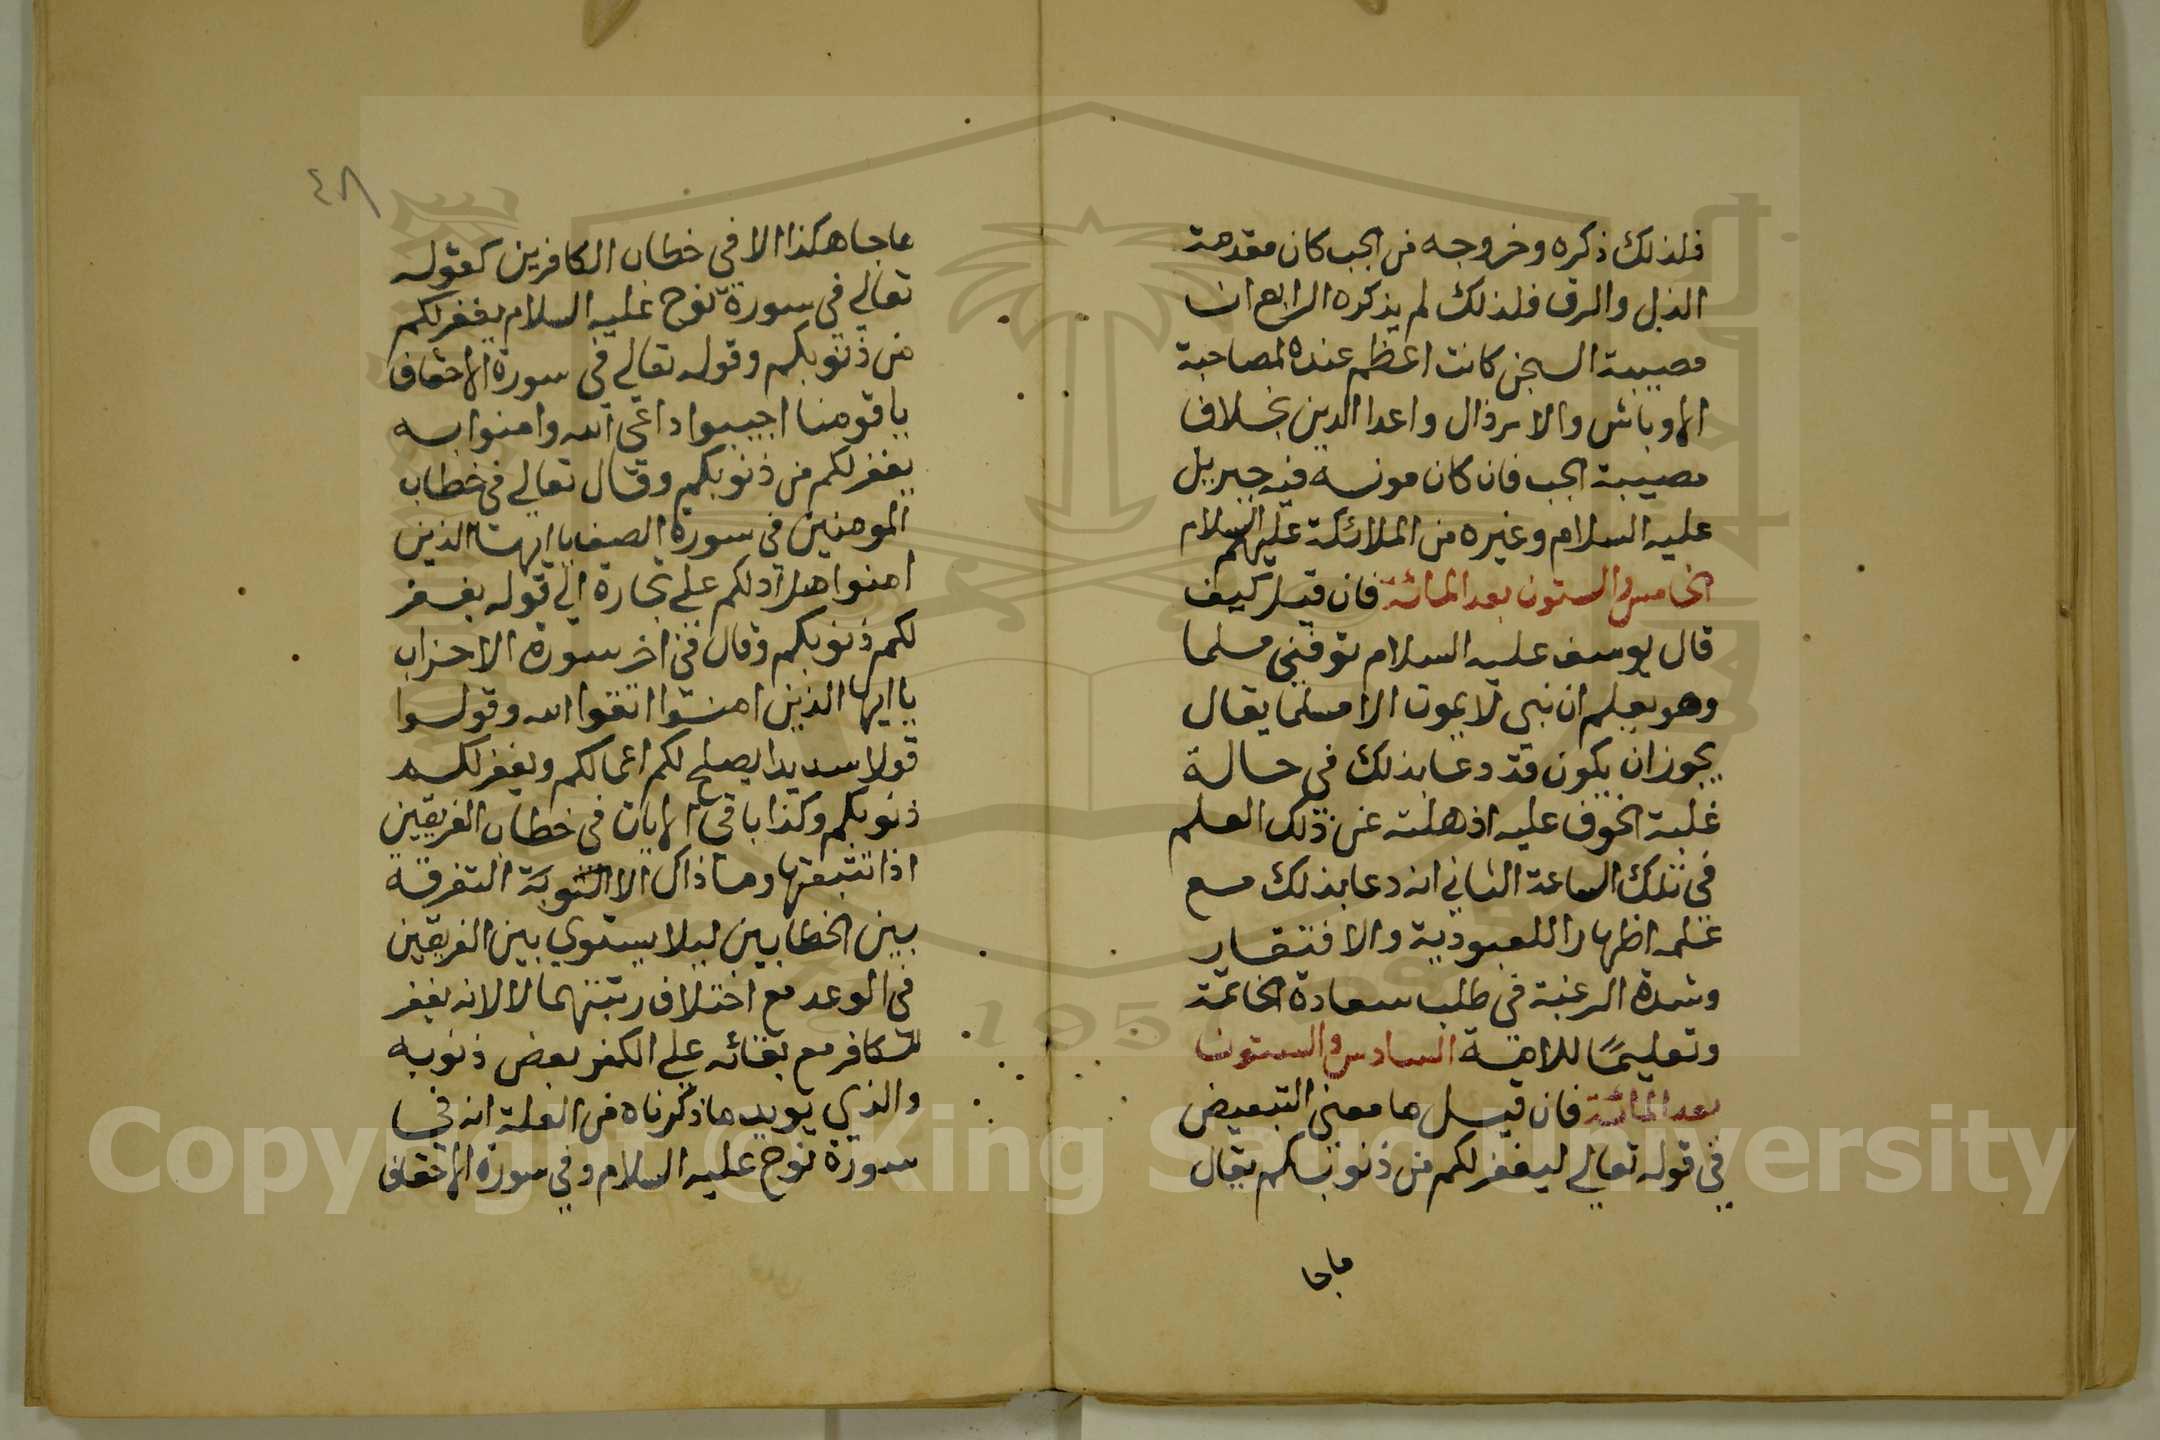 فلذلك ذكره وخروجه من الجب كان مقدمة
الذل والرق فلذلك لم يذكره الرابع ان
مصيبة السجن كانت اعظم عنده لمصاحبة
الاوباش والارذال واعدا الدين بخلاف
مصيبة الجب فان كان مونسه فيه جبريل
عليه السلام وغيره من الملائكة عليهم السلام
الخامس والستون بعد المائة فان قيل كيف
قال يوسف عليه السلام توفني مسلما
وهو يعلم ان نبي لا يموت الا مسلما يقال
يجوز ان يكون قد دعا بذلك في حالة
غلبة الخوف عليه اذهلته عن ذلك العلم
في تلك الساعة الثاني انه دعا بذلك مع
علمه اظهارا للعبودية والافتقار
وشدة الرغبة في طلب سعادة الخاتمة
وتعليمًا للامة السادس والستون
بعد المائة فان قيل ما معنى التبعيض
في قوله تعالى ليغفر لكم من ذنوبكم يقال
ماجا
٤٨
ماجا هكذا الا في خطاب الكافرين كقوله
تعالى في سورة نوح عليه السلام يغفر لكم
من ذنوبكم وقوله تعالى في سورة الاحقاف
يا قومنا اجيبوا داعي الله وامنوا به
يغفر لكم من ذنوبكم وقال تعالى في خطاب
المومنين في سورة الصف يا ايها الذين
امنوا هل ادلكم على تجارة الى قوله يغفر
لكم ذنوبكم وقال في اخر سورة الاحزاب
يا ايها الذين امنوا اتقوا الله وقولوا
قولا سديدا يصلح لكم اعمالكم ويغفر لكم
ذنوبكم وكذا باقي الايات في خطاب الفريقين
اذا تتبعتها وما ذاك الا التفرقة
بين الخطابين ليلا يستوي بين الفريقين
في الوعد مع اختلاف رتبتهما لا لانه يغفر
للكافر مع بقائه على الكفر بعض ذنوبه
والذي يويد ما ذكرناه من العلة انه في
سورة نوح عليه السلام وفي سورة الاحقاف
Copyright © King Saud University
195